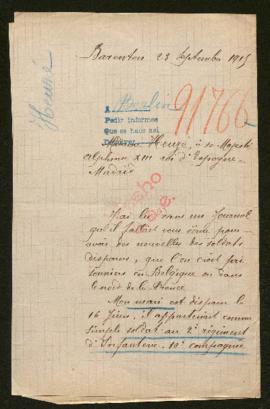 Barenton 23 Septembre 1915
Heuzé
A Berlin
91766
Pedir informes
Que se haus asi
Madame Heuzé, à sa Majesté
Alphonse XIII roi d'Espagne
Madrid
J'ai lu dans un Journal
qu'il fallait vous écrire pour
avoir des nouvelles des soldats
disparus, que l'on croit pri
sonniers en Belgique ou dans
le nord de la France
Mon mari est disparu le
16 Juin. il appartenait comme
simple soldat au 2e régiment
d'Infanterie 10e compagnie